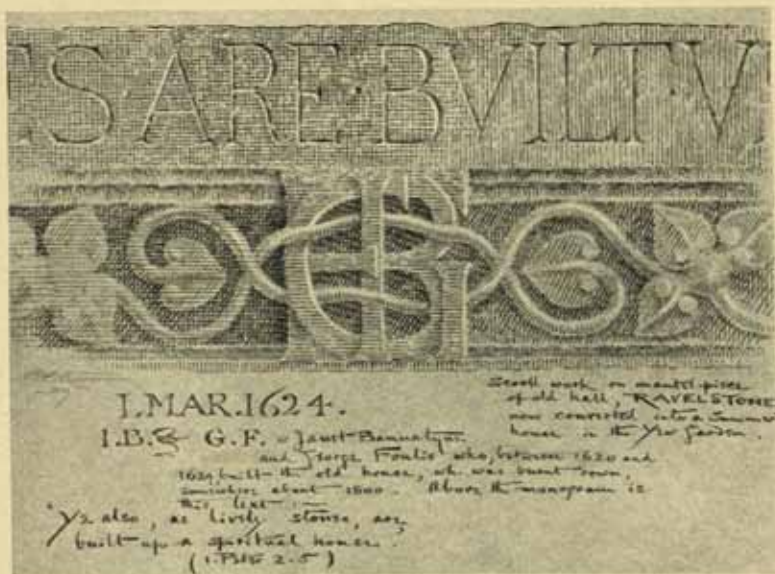 ES ARE·BVILT·V
I.MAR.1624.
I.B. & G.F. = Janet Bannatyne
and George Foulis who, between 1620 and
1624, built the old house, wh. was burnt down,
about 1800. Above the monogram is
this text :—
"Ye also, as lively stones, are
built up a spiritual house.
(1. Pet. 2.5)
Scroll work on mantel-piece
of old hall, RAVELSTONE
now converted into a Summer
house in the Yew Garden.